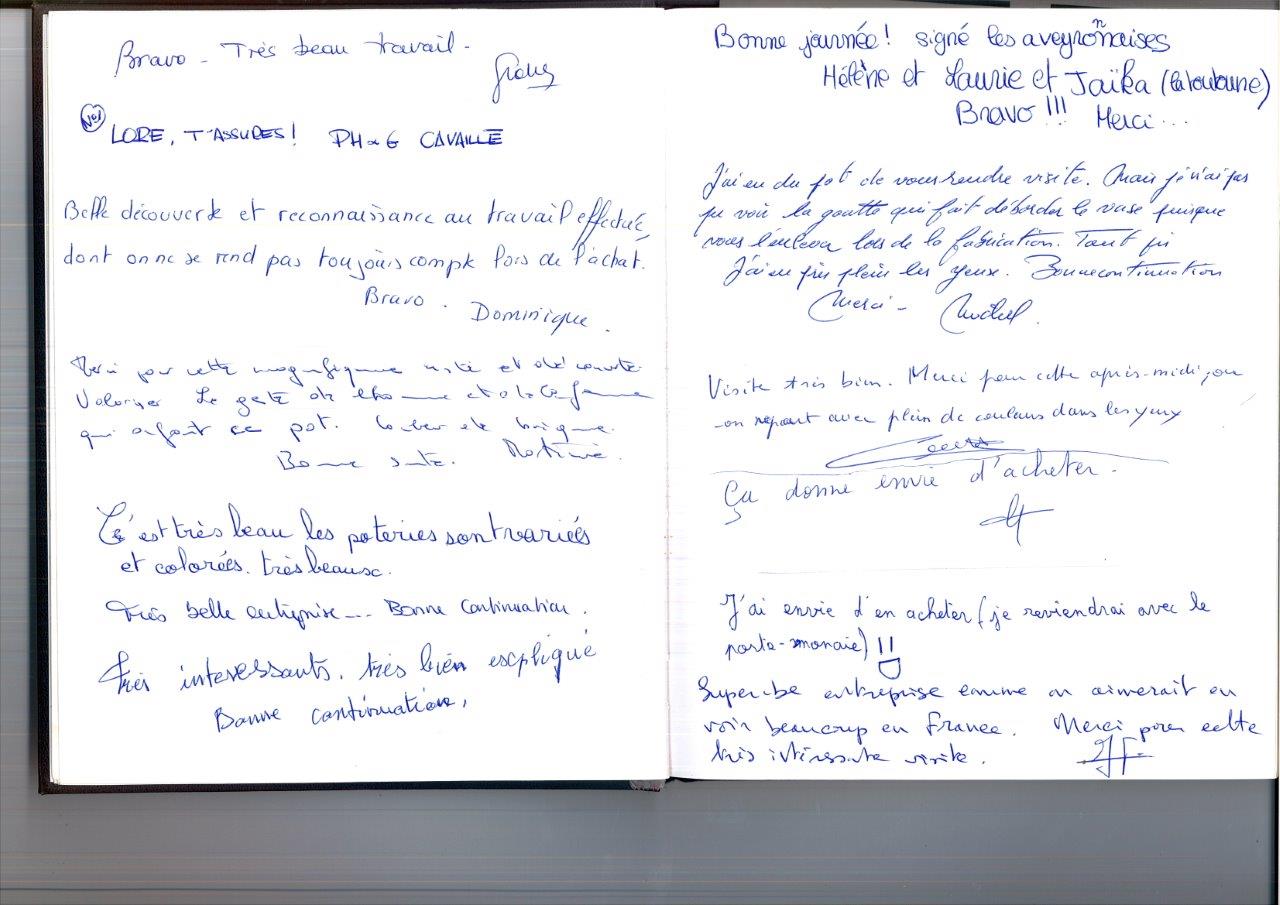 Bravo - Très beau travail -
No1
LORE, T'ASSURES! PH G CAVAILLE
Belle découverte et reconnaissance au travail effectué,
dont on ne se rend pas toujours compte lors de l'achat.
Bravo. Dominique.
Merci pour cette magnifique visite et découverte
Valoriser le geste de l'homme et de la femme
qui ce pot.
Bonne suite.
C'est très beau les poteries sont variées
et colorées. très beausc.
Très belle entreprise... Bonne Continuation.
Très interessants. très bien escpliqué
Bonne continuation,
Bonne journée! signé les aveyronnaises
Hélène et Laurie et Jaïka (la toutoune)
Bravo!!! Merci...
J'ai eu du pot de vous rendre visite. Mais je n'ai pas
pu voir la goutte qui fait déborder le vase puisque
vous l'enlevez lors de la fabrication. Tant pis
J'ai eu plein les yeux. Bonne continuation
Merci - Michel.
Visite très bien. Merci pour cette après-midi, on
on repart avec plein de couleurs dans les yeux
Ça donne envie d'acheter.
J'ai envie d'en acheter (je reviendrai avec le
porte-monaie) !!
Superbe entreprise comme on aimerait en
voir beaucoup en France. Merci pour cette
très intéressante visite.